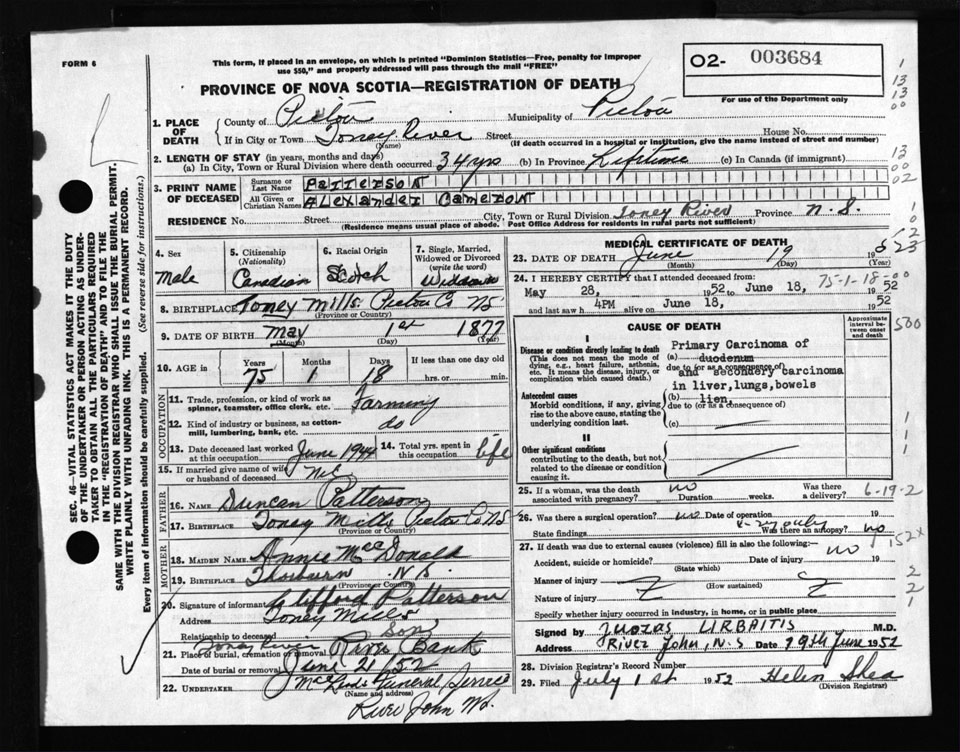 FORM 6
This form, if placed in an envelope, on which is printed "Dominion Statistics—Free, penalty for improper
use $50," and properly addressed will pass through the mail "FREE"
O2- 003684
For use of the Department only
PROVINCE OF NOVA SCOTIA—REGISTRATION OF DEATH
1. PLACE OF DEATH
County of Pictou Municipality of Pictou
If in City or Town Toney River Street House No.
(Name) (If death occurred in a hospital or institution, give the name instead of street and number)
2. LENGTH OF STAY (in years, months and days)
(a) In City, Town or Rural Division where death occurred 34 yrs (b) In Province Lifetime (c) In Canada (if immigrant)
3. PRINT NAME OF DECEASED
Surname or Last Name Patterson
All Given or Christian Names Alexander Cameron
RESIDENCE No. Street City, Town or Rural Division Toney River Province N.S.
(Residence means usual place of abode. Post Office Address for residents in rural parts not sufficient)
4. Sex Male
5. Citizenship (Nationality) Canadian
6. Racial Origin Scotch
7. Single, Married, Widowed or Divorced (write the word)
8. BIRTHPLACE Toney Mills Pictou Co NS
(Province or Country)
9. DATE OF BIRTH May 1st 1877
(Month) (Day)
10. AGE in Years 75 Months 1 Days 18 If less than one day old hrs. or min.
OCCUPATION
11. Trade, profession, or kind of work as spinner, teamster, office clerk, etc. Farming
12. Kind of industry or business, as cotton-mill, lumbering, bank, etc. do
13. Date deceased last worked at this occupation June 1944
14. Total yrs. spent in this occupation life
15. If married give name of wife or husband of deceased
FATHER
16. NAME Duncan Patterson
17. BIRTHPLACE Toney Mills Pictou Co NS
(Province or Country)
MOTHER
18. MAIDEN NAME Annie McDonald
19. BIRTHPLACE Thorburn N.S.
(Province or Country)
20. Signature of informant Clifford Patterson
Address Toney Mills
Relationship to deceased Son
21. Place of burial, cremation or removal Toney River Bank
Date of burial or removal June 21/52
22. UNDERTAKER Funeral Service
(Name and address)
River John NS.
MEDICAL CERTIFICATE OF DEATH
23. DATE OF DEATH June 19 19
(Month) (Day)
24. I HEREBY CERTIFY that I attended deceased from
May 28, 1952 to June 18, 1952
75-1-18-00
and last saw h alive on 4PM June 18, 1952
CAUSE OF DEATH
Approximate interval between onset and death
I
Disease or condition directly leading to death
(This does not mean the mode of dying, e.g., heart failure, asthenia, etc. It means the disease, injury, or complication which caused death.)
Primary Carcinoma of
(a) duodenum
due to (or as a consequence of)
and secondery carcinoma
in liver,lungs,bowels
(b) lien.
due to (or as a consequence of)
(c)
Antecedent causes
Morbid conditions, if any, giving rise to the above cause, stating the underlying condition last.
II
Other significant conditions
contributing to the death, but not related to the disease or condition causing it.
25. If a woman, was the death associated with pregnancy? no Duration weeks. Was there a delivery?
6-19-2
26. Was there a surgical operation? no Date of operation 19
State findings x-ray only Was there an autopsy? no
27. If death was due to external causes (violence) fill in also the following:—
Accident, suicide or homicide? no Date of injury 19
(State which)
Manner of injury
(How sustained)
Nature of injury
Specify whether injury occurred in industry, in home, or in public place
Signed by Juozas URBAITIS M.D.
Address River John, N.S Date 19th June 1952
28. Division Registrar's Record Number
29. Filed July 1st 1952 Helen Shea
(Division Registrar)
SEC. 46—VITAL STATISTICS ACT MAKES IT THE DUTY
OF THE UNDERTAKER OR PERSON ACTING AS UNDER-
TAKER TO OBTAIN ALL THE PARTICULARS REQUIRED
IN THE "REGISTRATION OF DEATH" AND TO FILE THE
SAME WITH THE DIVISION REGISTRAR WHO SHALL ISSUE THE BURIAL PERMIT.
WRITE PLAINLY WITH UNFADING INK. THIS IS A PERMANENT RECORD.
Every item of information should be carefully supplied. (See reverse side for instructions.)
1
13
13
00
13
00
02
500
152X
2
2
1